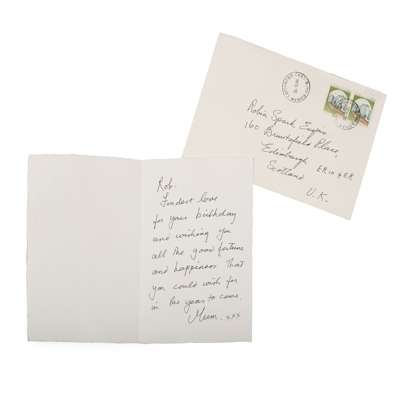 Robin Spark Esquire
160 Bruntsfield Place,
Edinburgh
Scotland
U.K.
Rob.
Fondest love
for your birthday
and wishing you
all the good fortune
and happiness that
you could wish for
in the year to come.
Mum. xxx